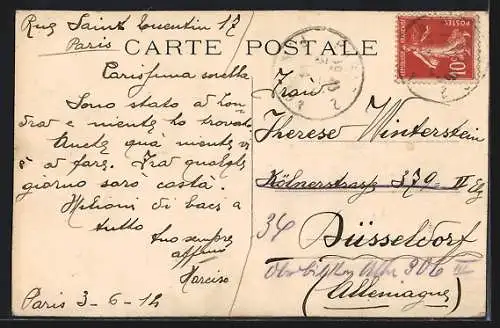 Rue Saint Quentin 17
Paris
CARTE POSTALE
Carissima sorella
Sono stato a Lon
dra e niente ho trovato.
Anche quà niente vi
è a fare. Frà qualche
giorno sarò costà.
Milioni di baci a
tutto
tuo sempre
affmo
Narciso
Paris 3-6-14
Fraü
Therese Winterstein
Kölnerstrasse 379 II Etg
34
Düsseldorf
306 III
(Allemagne)
POSTES
10